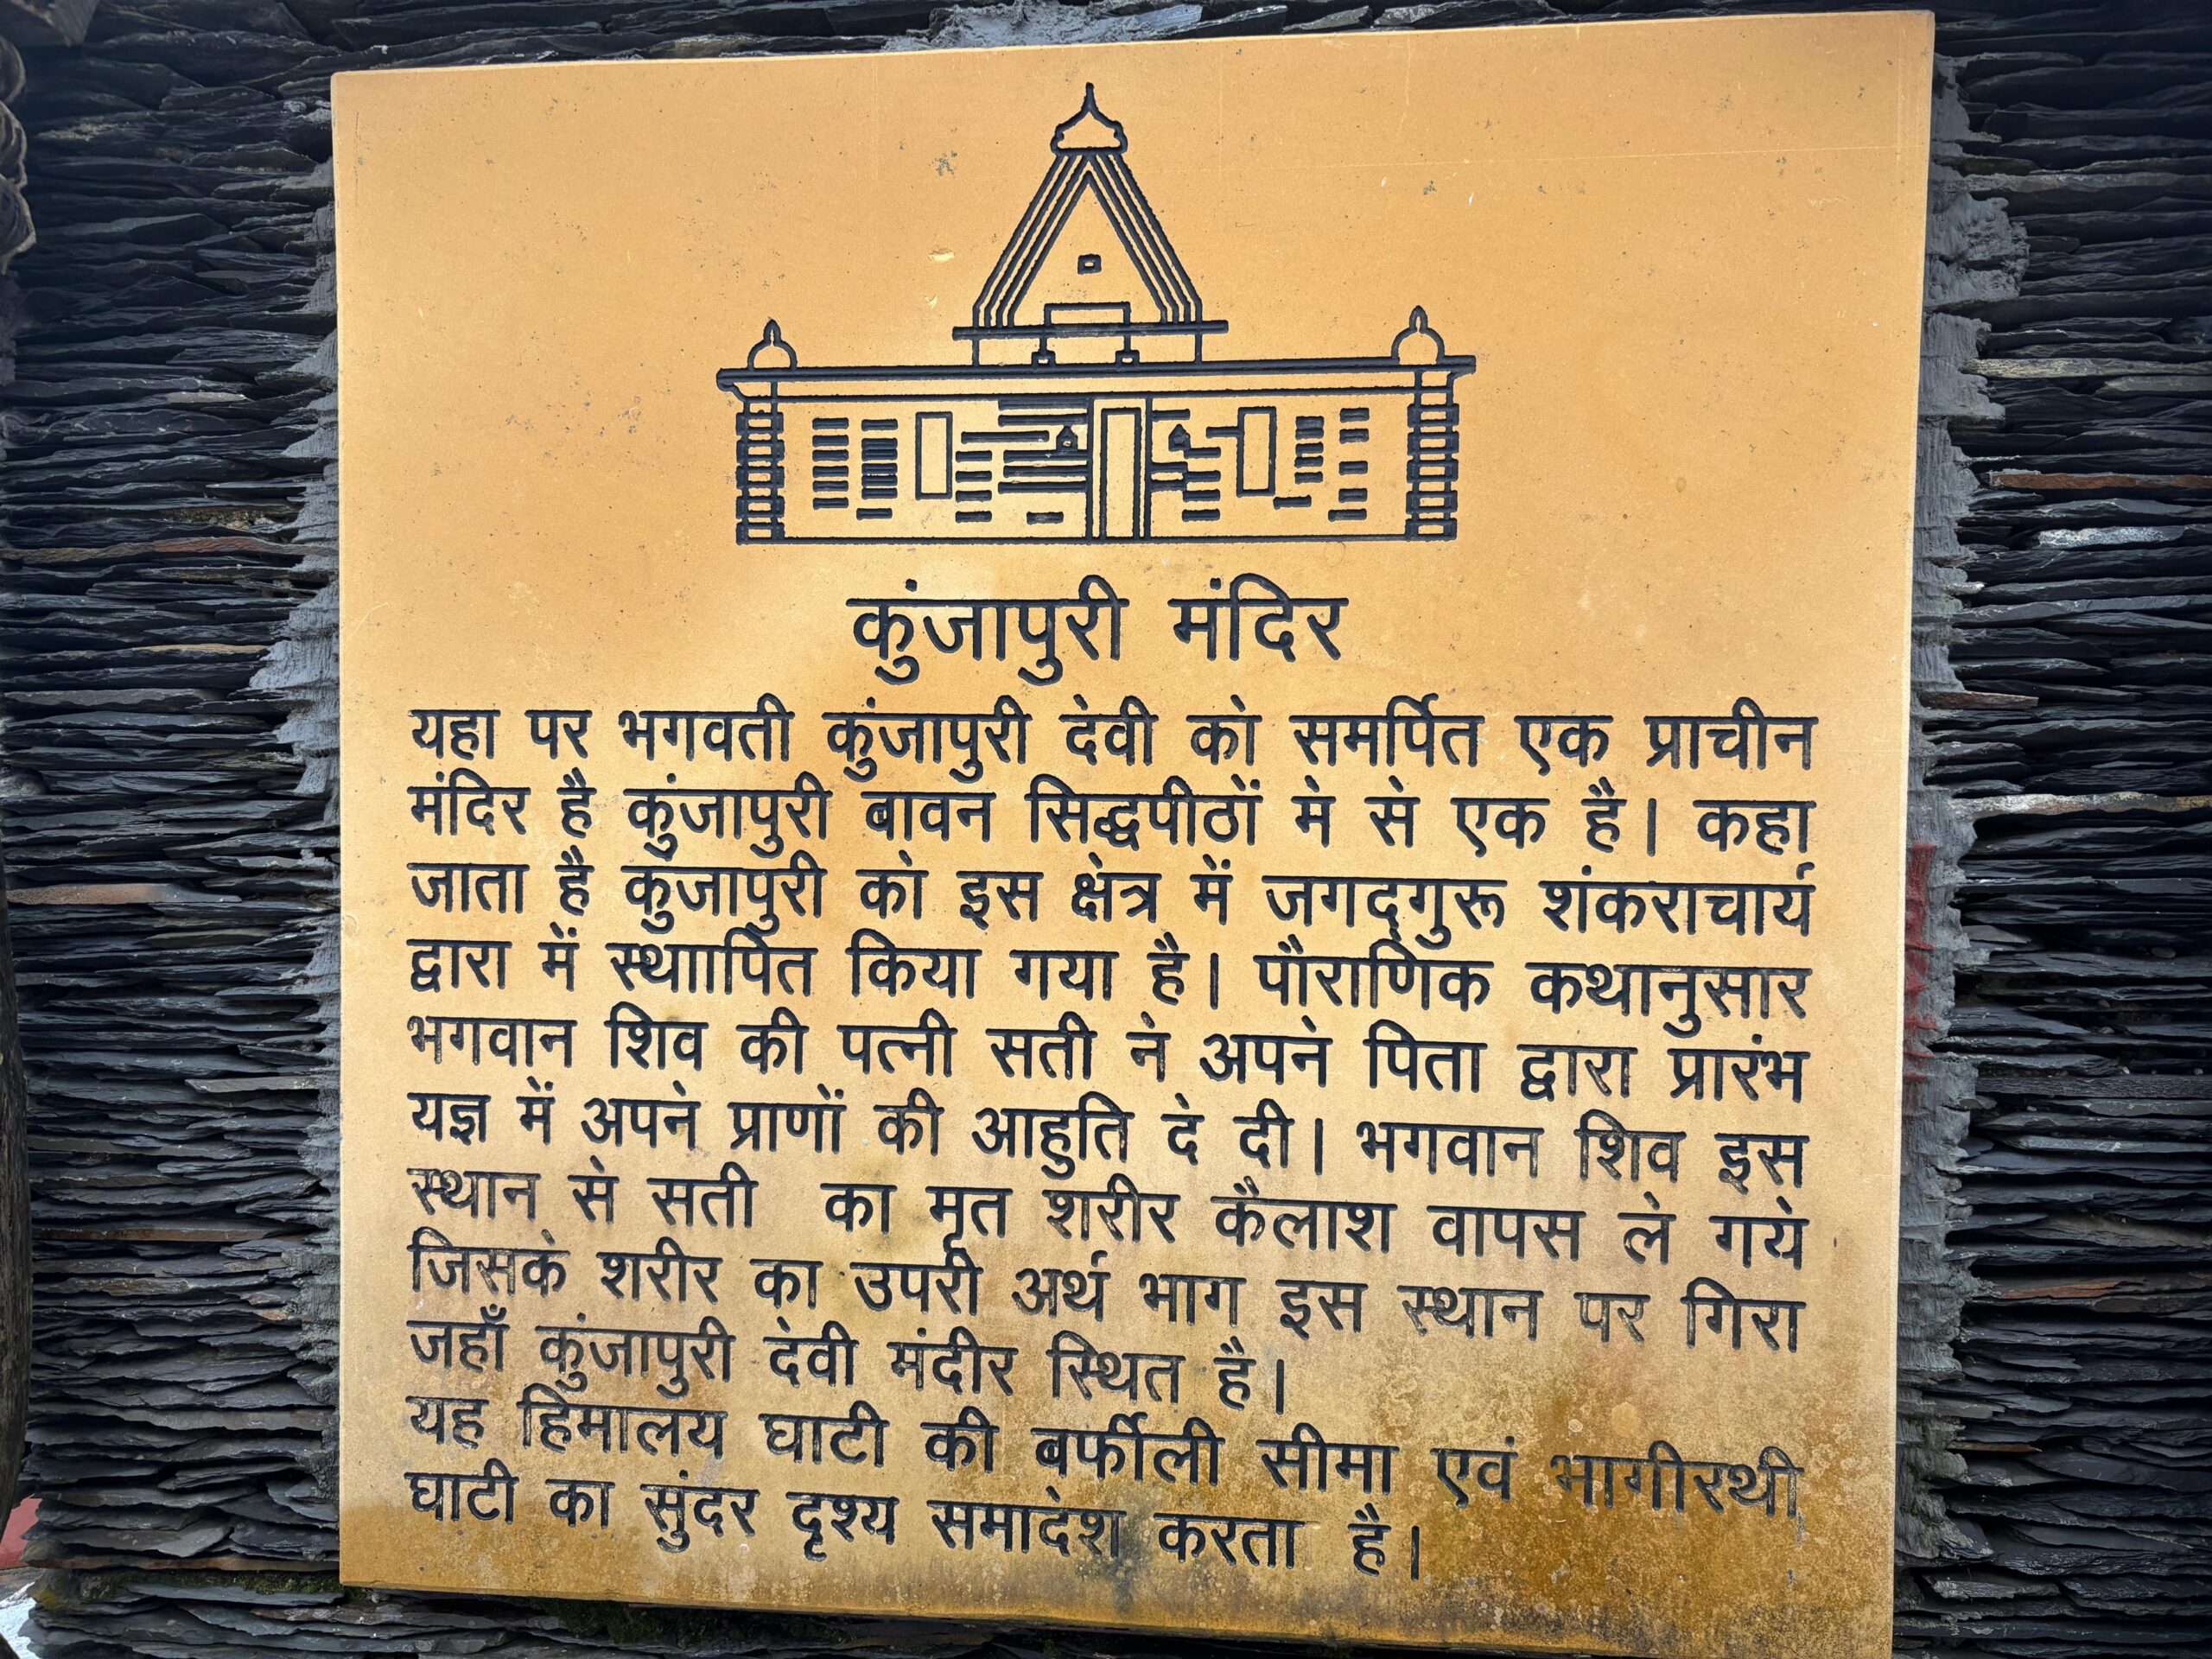 कुंजापुरी मंदिर
यहा पर भगवती कुंजापुरी देवी को समर्पित एक प्राचीन
मंदिर है कुंजापुरी बावन सिद्धपीठों में से एक है। कहा
जाता है कुंजापुरी को इस क्षेत्र में जगद्गुरू शंकराचार्य
द्वारा में स्थाापित किया गया है। पौराणिक कथानुसार
भगवान शिव की पत्नी सती ने अपने पिता द्वारा प्रारंभ
यज्ञ में अपने प्राणों की आहुति दे दी। भगवान शिव इस
स्थान से सती का मृत शरीर कैलाश वापस ले गये
जिसके शरीर का उपरी अर्थ भाग इस स्थान पर गिरा
जहाँ कुंजापुरी देवी मंदीर स्थित है।
यह हिमालय घाटी की बर्फीली सीमा एवं भागीरथी
घाटी का सुंदर दृश्य समादेश करता है।